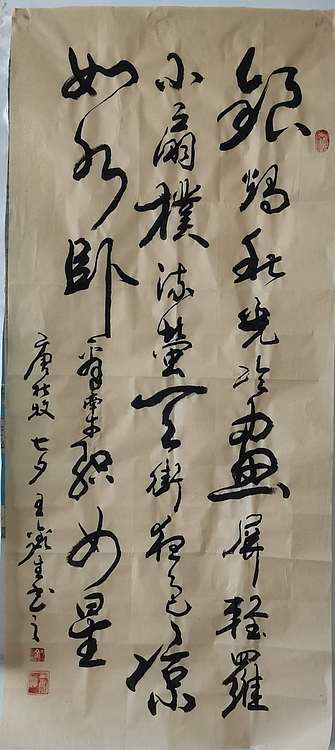 銀燭秋光冷畫屏輕羅
小扇撲流螢天街夜色涼
如水卧看牽牛織女星
唐杜牧七夕王生书